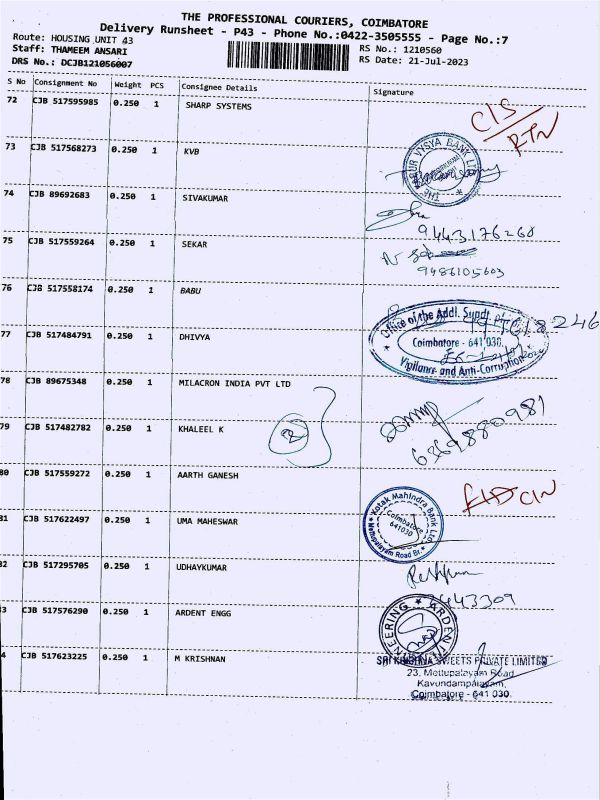 THE PROFESSIONAL COURIERS, COIMBATORE
Delivery Runsheet - P43 - Phone No.:0422-3505555 - Page No.:7
Route: HOUSING UNIT 43
RS No.: 1210560
Staff: THAMEEM ANSARI
RS Date: 21-Jul-2023
DRS No.: DCJB121056007
S No Consignment No Weight PCS Consignee Details Signature
72 CJB 517595985 0.250 1 SHARP SYSTEMS
C/S
RTN
73 CJB 517568273 0.250 1 KVB
74 CJB 89692683 0.250 1 SIVAKUMAR
9443176260
75 CJB 517559264 0.250 1 SEKAR
9486105603
76 CJB 517558174 0.250 1 BABU
Office of the Addl. Supdt. of
Coimbatore - 641 030.
Vigilance and Anti-Corruption
77 CJB 517484791 0.250 1 DHIVYA
78 CJB 89675348 0.250 1 MILACRON INDIA PVT LTD
79 CJB 517482782 0.250 1 KHALEEL K
6369880981
80 CJB 517559272 0.250 1 AARTH GANESH
Kotak Mahindra Bank Ltd.
Coimbatore
641030
Mettupalayam Road Br.
81 CJB 517622497 0.250 1 UMA MAHESWAR
82 CJB 517295705 0.250 1 UDHAYKUMAR
9443309
3 CJB 517576290 0.250 1 ARDENT ENGG
4 CJB 517623225 0.250 1 M KRISHNAN
SRI KRISHNA SWEETS PRIVATE LIMITED
23, Mettupalayam Road
Kavundampalayam,
Coimbatore - 641 030.